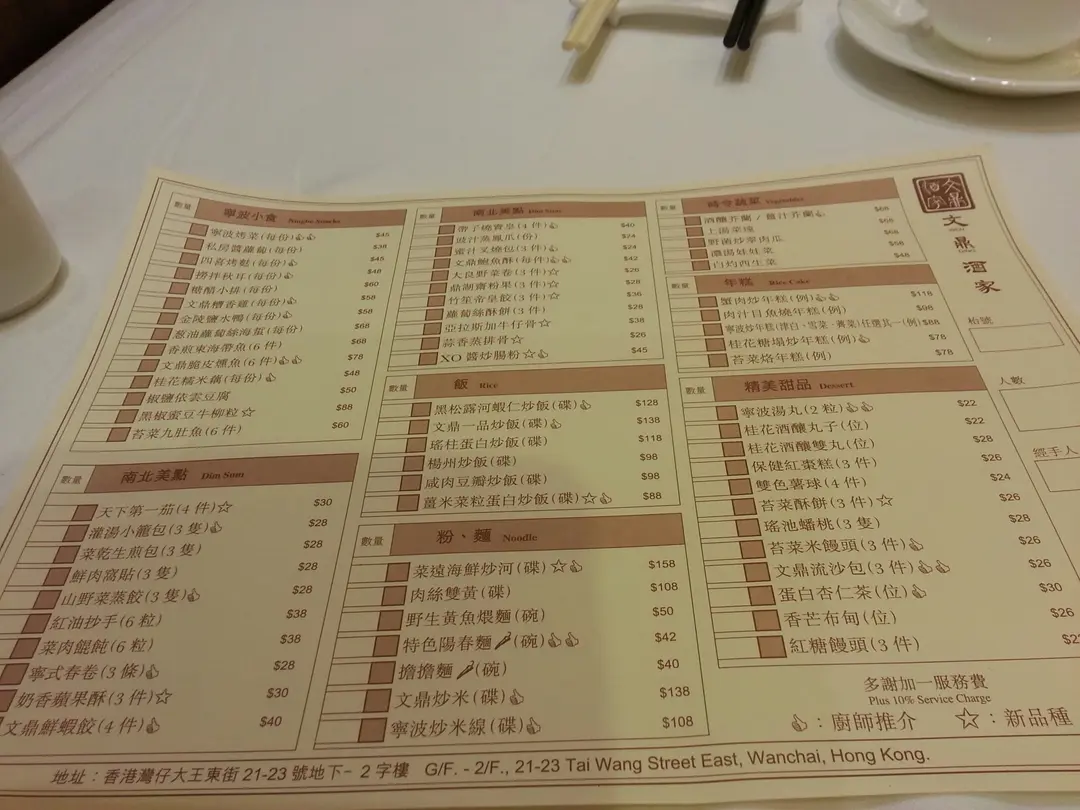 數量 寧波小食 Ningbo Snacks
寧波烤菜(每份)👍👍 $45
私房醬蘿蔔(每份) $38
四喜烤麩(每份)👍 $45
撈拌秋耳(每份)👍 $48
糖醋小排(每份) $60
文鼎糟香雞(每份)👍 $58
金陵鹽水鴨(每份)👍 $58
葱油蘿蔔絲海蜇(每份) $68
香煎東海帶魚(6 件) $68
文鼎脆皮燻魚(6 件)👍👍 $78
桂花糯米藕(每份)👍 $48
椒鹽依雲豆腐 $50
黑椒蜜豆牛柳粒☆ $88
苔菜九肚魚(6 件) $60
數量 南北美點 Dim Sum
天下第一茄(4 件)☆ $30
灌湯小籠包(3 隻)👍 $28
菜乾生煎包(3 隻) $28
鮮肉窩貼(3 隻) $28
山野菜蒸餃(3 隻)👍 $28
紅油抄手(6 粒) $38
菜肉餛飩(6 粒) $38
寧式春卷(3 條)👍 $28
奶香蘋果酥(3 件)☆ $30
文鼎鮮蝦餃(4 件)👍 $40
數量 南北美點 Dim Sum
帶子燒賣皇(4 件)👍 $40
豉汁蒸鳳爪(份) $24
蜜汁叉燒包(3 件)👍 $24
文鼎鮑魚酥(每件)👍👍 $42
大良野菜卷(3 件)☆ $26
鼎湖齋粉果(3 件)☆ $28
竹笙帝皇餃(3 件)☆ $36
蘿蔔絲酥餅(3 件) $28
亞拉斯加牛仔骨☆ $38
蒜香蒸排骨☆ $26
XO 醬炒腸粉☆👍 $45
數量 飯 Rice
黑松露河蝦仁炒飯(碟)👍 $128
文鼎一品炒飯(碟)👍 $138
瑤柱蛋白炒飯(碟) $118
楊州炒飯(碟) $98
咸肉豆瓣炒飯(碟) $98
薑米菜粒蛋白炒飯(碟)☆👍 $88
數量 粉、麵 Noodle
菜遠海鮮炒河(碟)☆👍 $158
肉絲雙黃(碟) $108
野生黃魚煨麵(碗) $50
特色陽春麵🌶(碗)👍👍 $42
擔擔麵🌶(碗) $40
文鼎炒米(碟)👍 $138
寧波炒米線(碟)👍 $108
數量 時令蔬菜 Vegetables
酒釀芥蘭 / 薑汁芥蘭👍 $68
上湯菜 $68
野菌炒翠肉瓜 $68
濃湯娃娃菜 $58
白灼西生菜 $48
數量 年糕 Rice Cake
蟹肉炒年糕(例)👍👍 $118
肉汁目魚燒年糕(例) $98
寧波炒年糕(津白、雪菜、薺菜)任選其一(例) $88
桂花糖塌炒年糕(例)👍 $78
苔菜烙年糕(例) $78
數量 精美甜品 Dessert
寧波湯丸(2 粒)👍👍 $22
桂花酒釀丸子(位) $22
桂花酒釀雙丸(位) $28
保健紅棗糕(3 件) $26
雙色薯球(4 件) $24
苔菜酥餅(3 件)☆ $26
瑤池蟠桃(3 隻) $28
苔菜米饅頭(3 件)👍 $26
文鼎流沙包(3 件)👍👍 $26
蛋白杏仁茶(位)👍 $30
香芒布甸(位) $26
紅糖饅頭(3 件)
文鼎酒家
文鼎酒家
枱號
人數
經手人
多謝加一服務費
Plus 10% Service Charge
👍：廚師推介 ☆：新品種
地址：香港灣仔大王東街 21-23 號地下- 2 字樓 G/F. - 2/F., 21-23 Tai Wang Street East, Wanchai, Hong Kong.